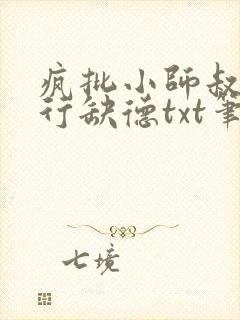 疯批小师叔
行缺德txt筆
七境